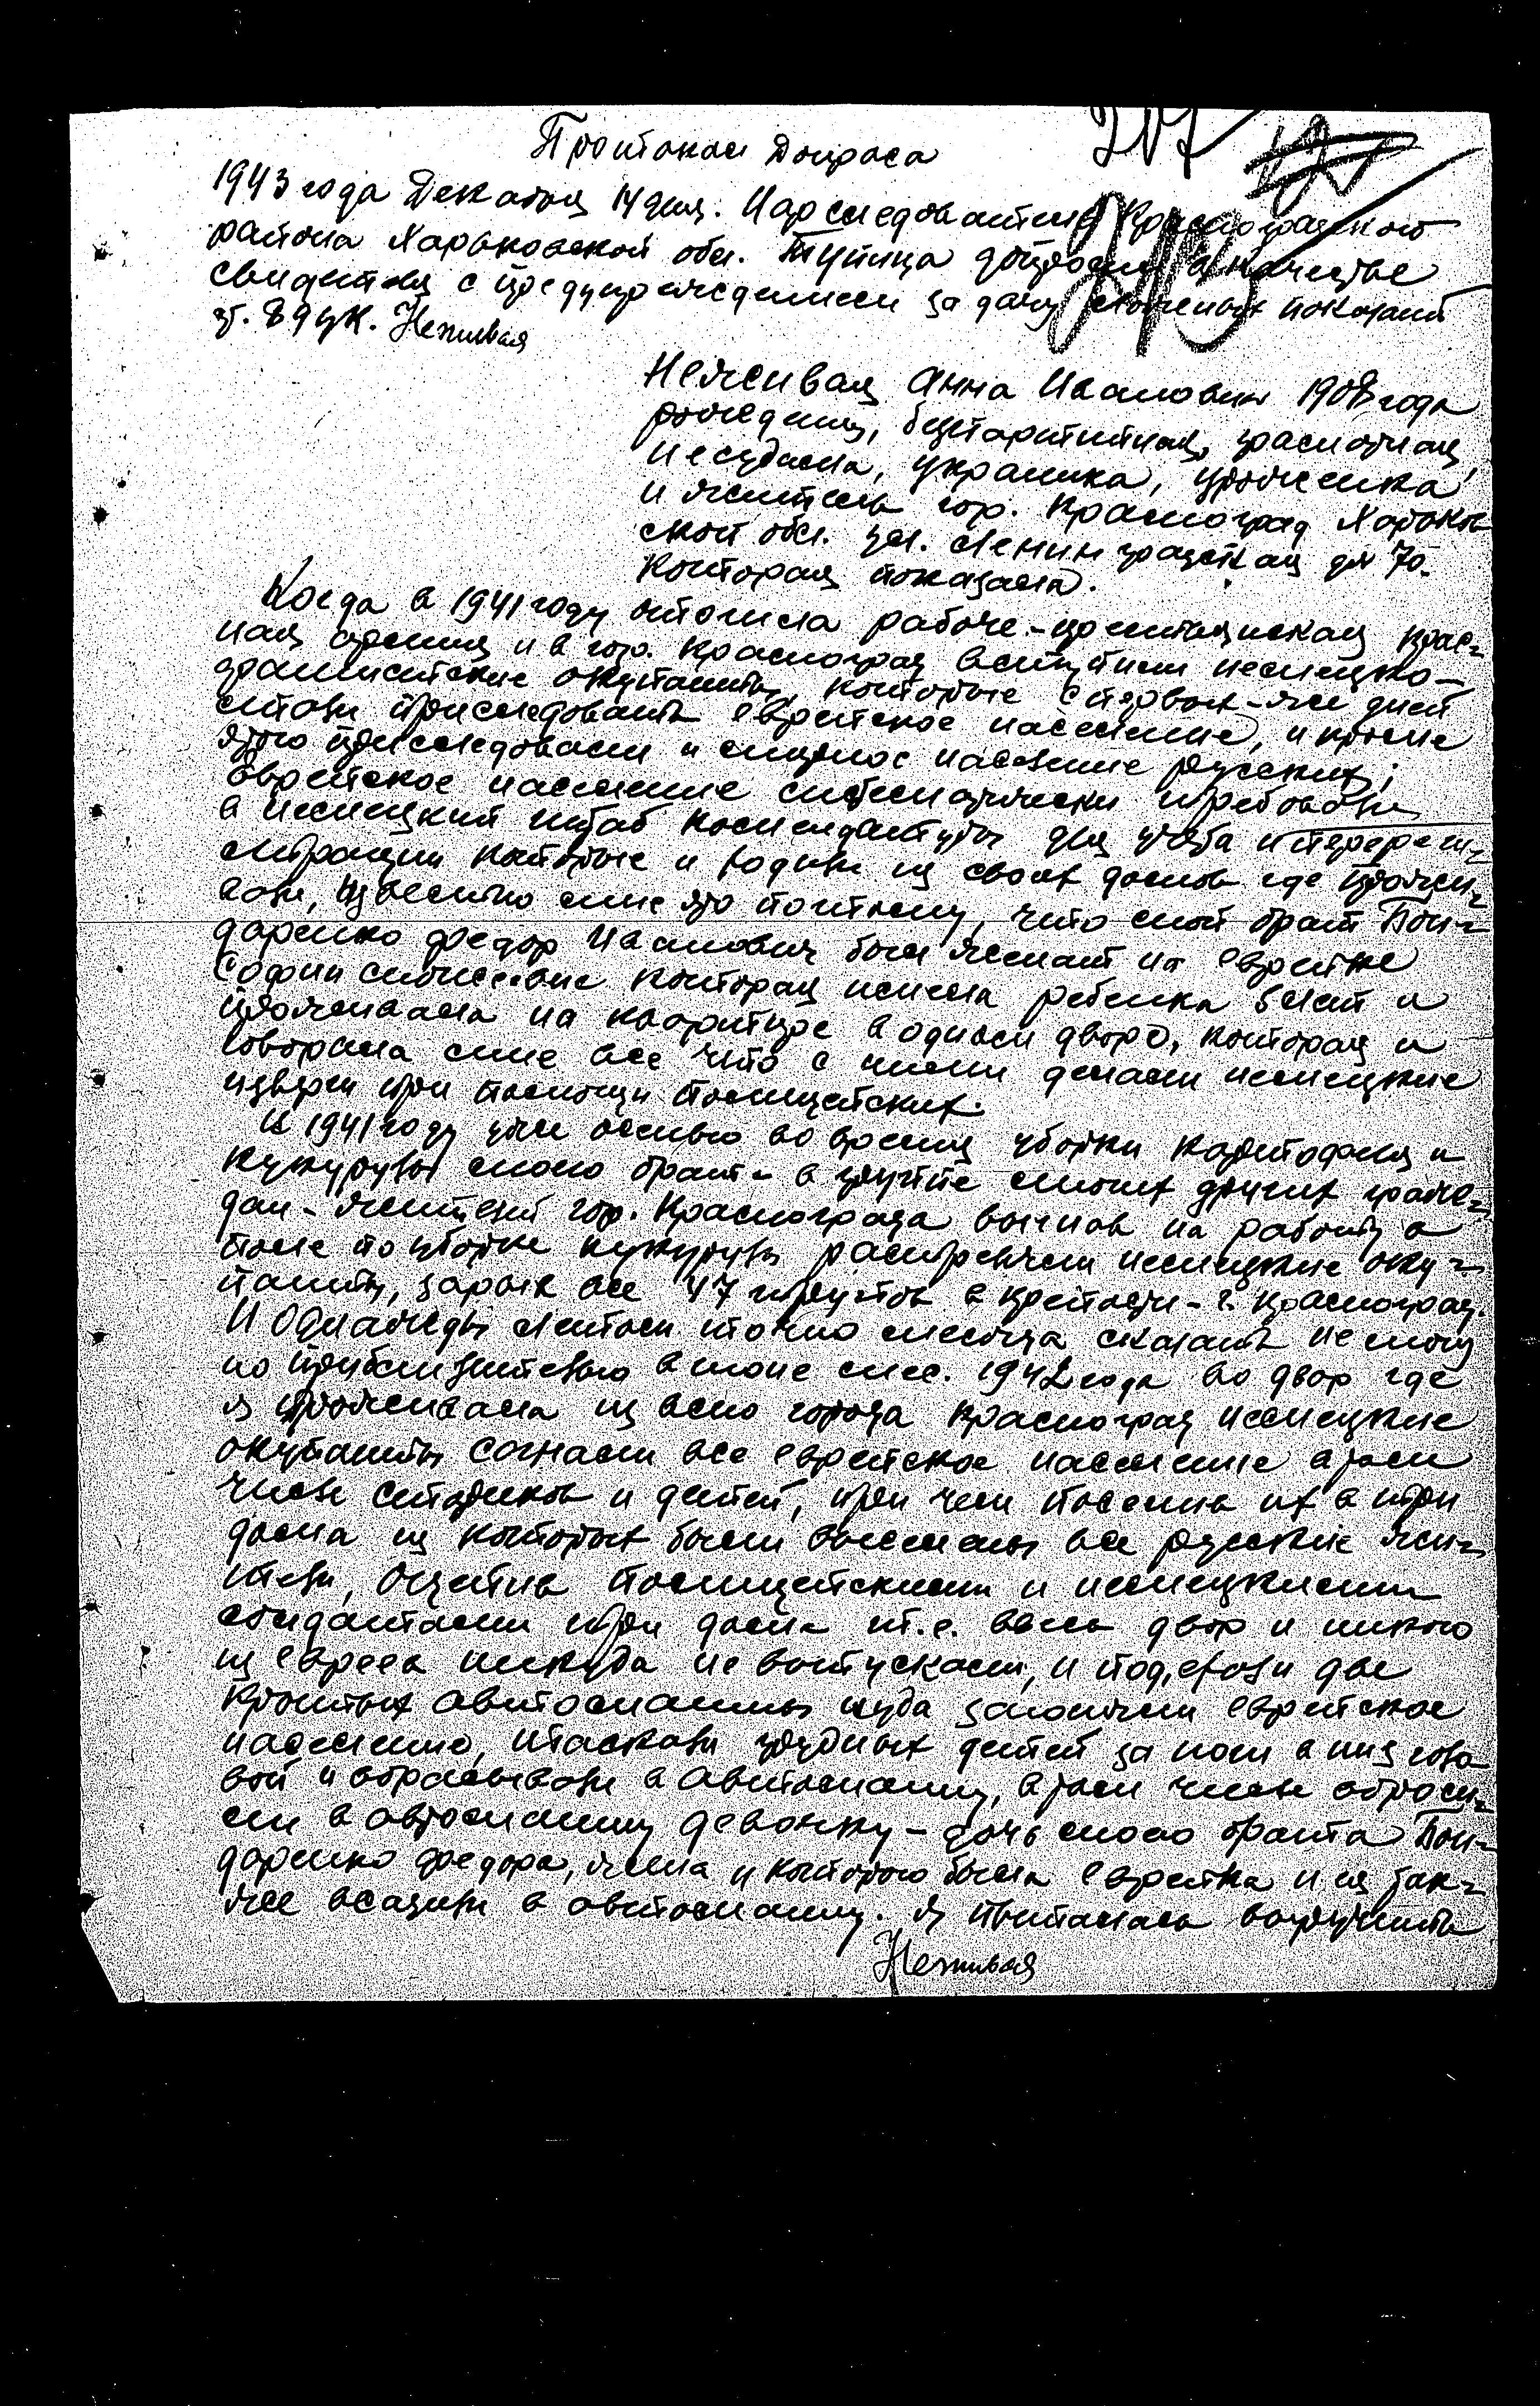 Протокол Допроса
207
1943 года Декабря 14 дня. Нарследователь Красноградского
района Харьковской обл. Тупица допросил в качестве
свидетеля с предупреждением за дачу ложных показаний
ст. 89 ук. Неживая
Неживая Анна Ивановна 1908 года
рождения, безпартийная, грамотная,
несудима, украинка, уроженка
и житель гор. Красноград Харьков
ской обл. ул. Ленинградская дм 70.
Которая показала.
Когда в 1941 году отошла рабоче-крестьянская крас-
ная армия и в гор. Красноград вступили немецко-
фашистские окупанты, которые с первых-же дней
стали приследовать еврейское население, и кроме
этого приследовали и мирное население русских;
Еврейское население систематически требовали
в немецкий штаб комендатуры для учета и перереги-
страции которые и ходили из своих домов где прожи-
вали, Известно мне это потому, что мой брат Бон-
даренко Федор Иванович был женат на еврейке
Софии которая имела ребенка 5 лет и
проживала на квартире в одном дворе, которая и
говорила мне все что с ними делали немецкие
изверги при помощи полицейских.
В 1941 году уже осенью во время уборки картофеля и
кукурузы моего брата в группе многих других граж-
дан-жителей гор. Краснограда выгнав на работу в
поле по уборке кукурузы расстреляли немецкие оку-
панты, зарыв все 47 трупов в крепости - г. Красноград.
И Однажды летом точно месяца сказать не могу
но приблизительно в июне мес. 1942 года во двор где
я проживала из всего города Красноград немецкие
окупанты согнали все еврейское население в том
числе стариков и детей, при чем поселив их в три
дома из которых были выселены все русские жи-
тели, Оцепив полицейскими и немецкими
солдатами три дома т.е. весь двор и никого
из евреев никуда не выпускали, и подъехали две
крытых автомашины куда загоняли еврейское
население, таскали грудных детей за ноги в низ голо-
вой и вбрасывали в автомашину, в том числе вброси-
ли в автомашину девочку - дочь моего брата Бон-
даренко Федора, жена у которого была еврейка и ее так-
же всадили в автомашину. Я пыталась выручить
Неживая